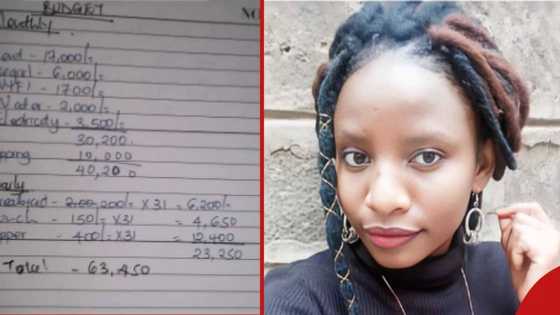 BUDGET
Monthly
- 17,000/=
- 6,000/=
WIFI - 1700/=
Water - 2,000/=
lectricity - 3,500/=
30,200
pping 10,000
40,200
aily
reakfast - 200/= X 31 = 6,200/=
nch - 150/= X31 = 4,650
pper - 400/= X31 = 12,400
23,250
Total - 63,450